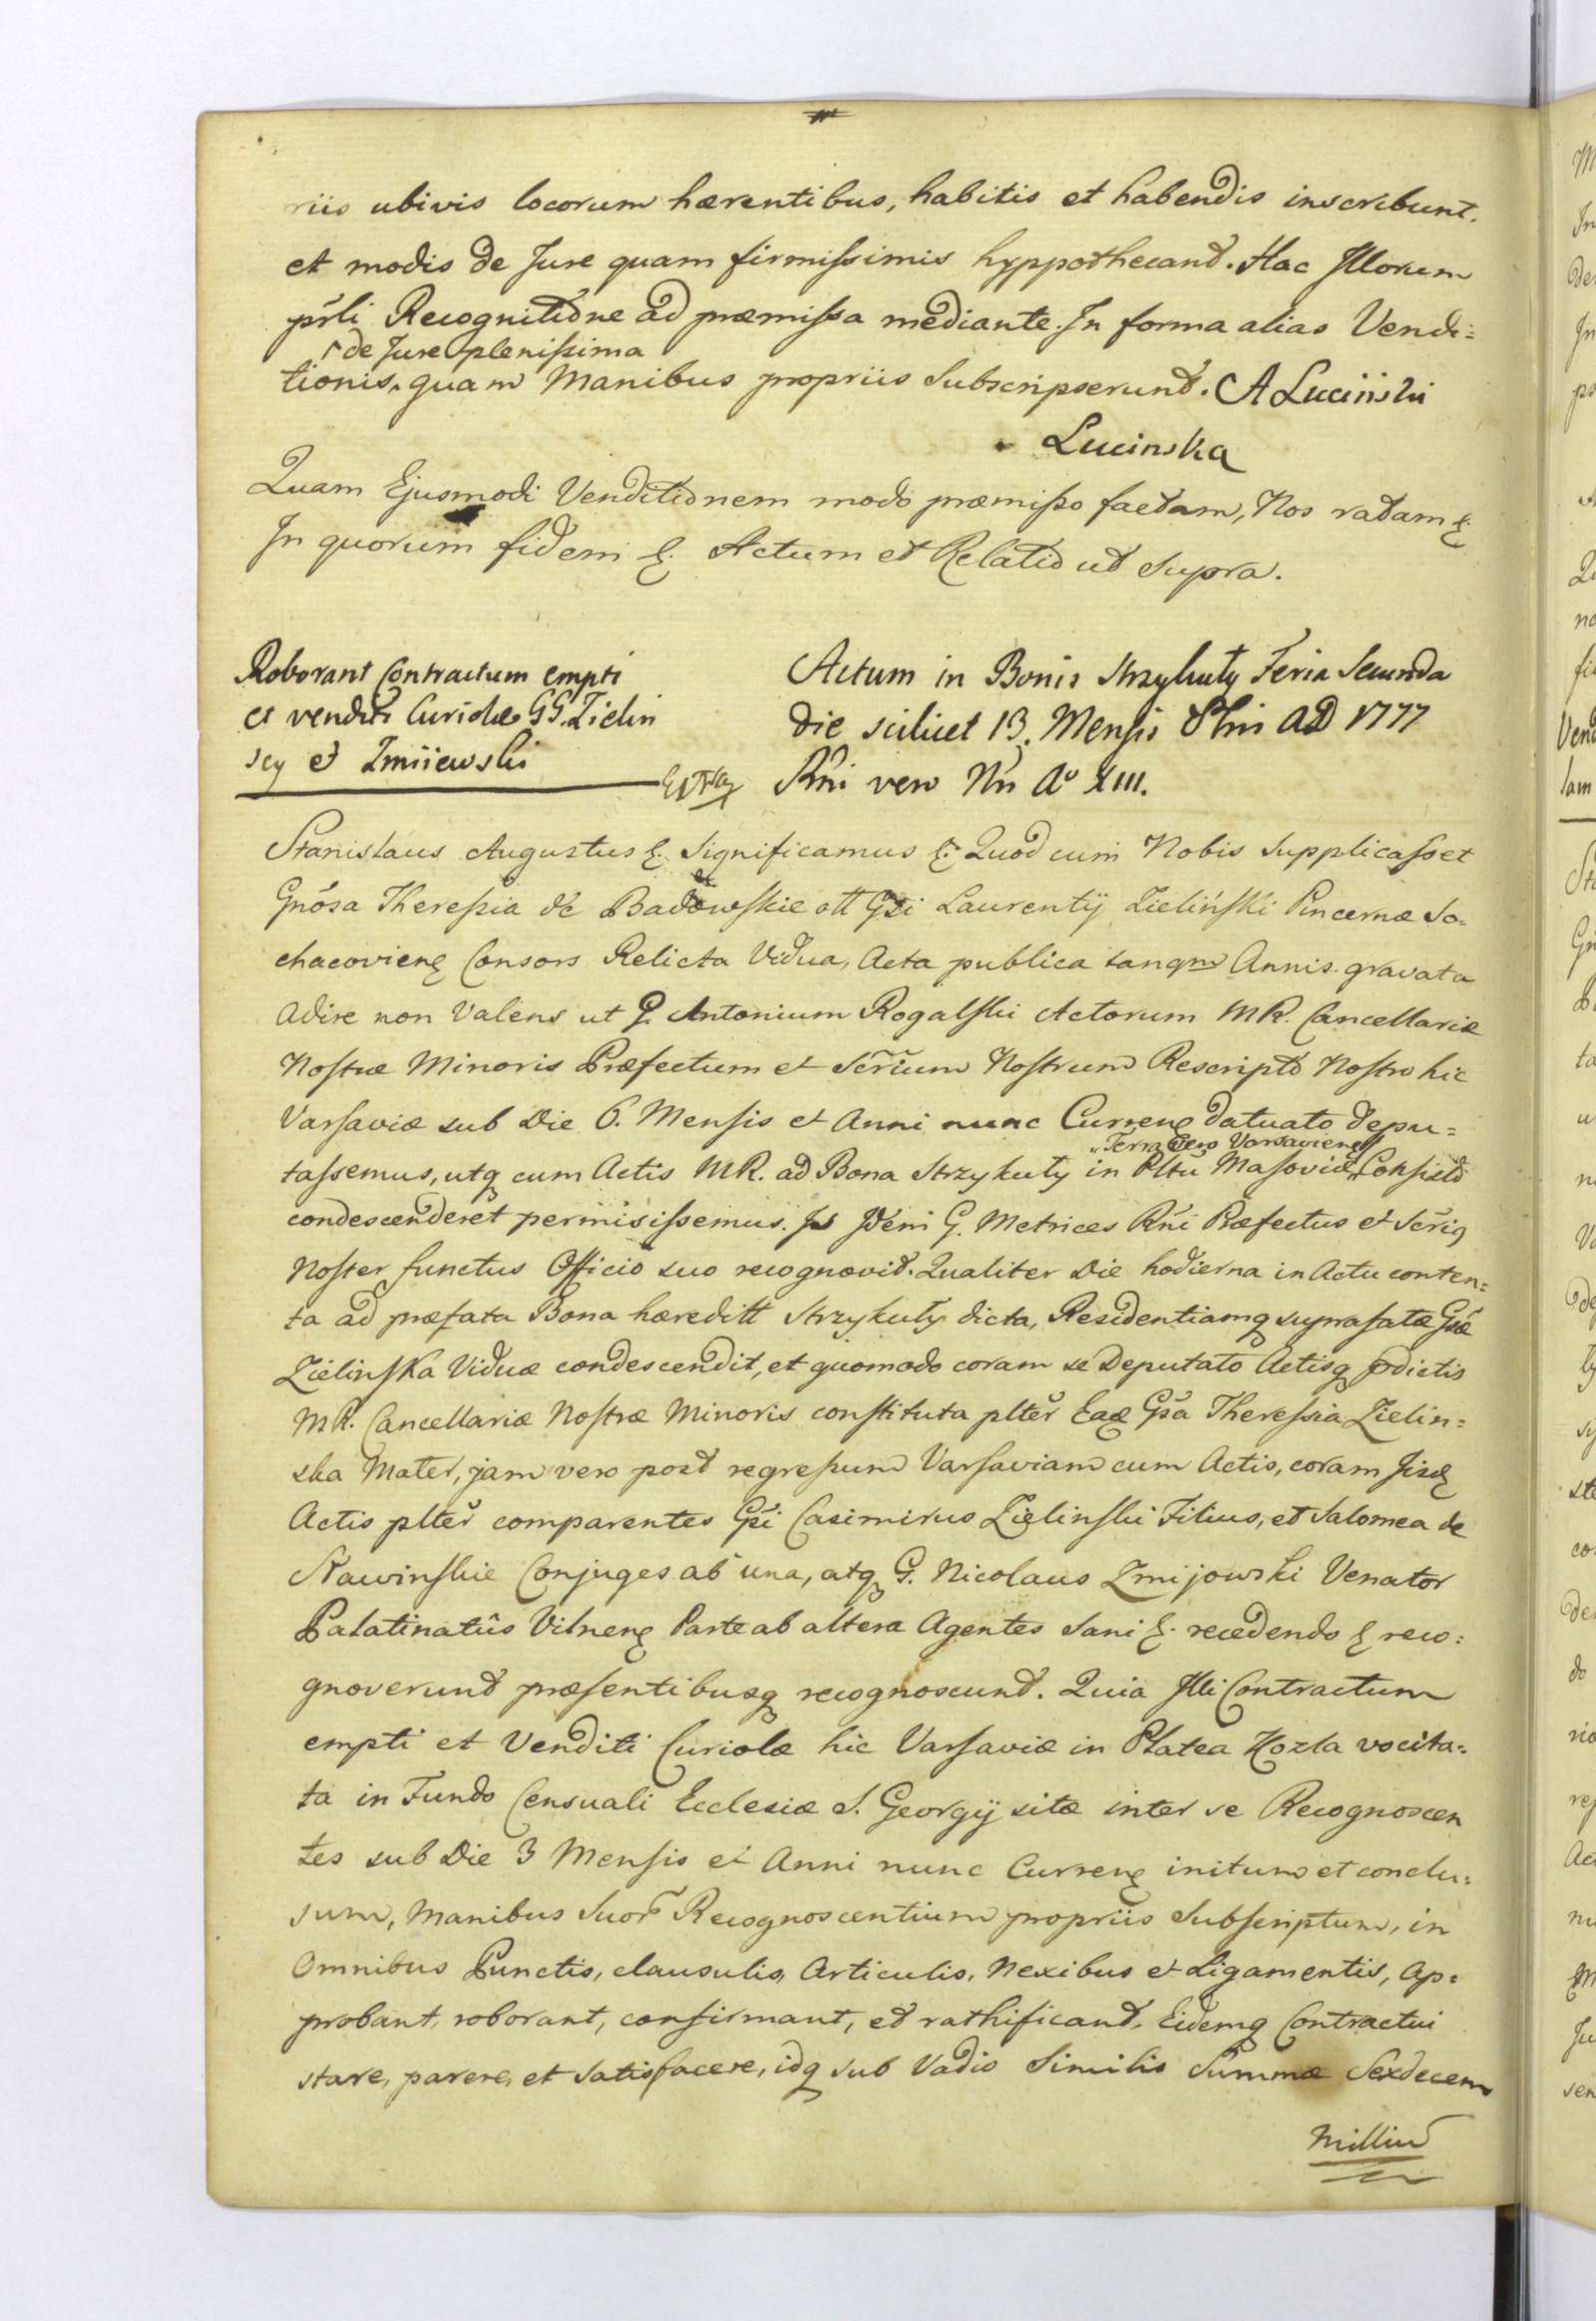 riis ubivis locorum hærentibus, habitis et habendis inscribunt.
et modis de Jure quam firmissimis hyppothecand. Hac Illorum
pr̃li Recognitione ad præmissa mediante. In forma alias Vendi=
de Jure plenissima
tionis quam Manibus propriis Subscripserunt. A Luciński
Lucinska
Quam Ejusmodi Venditionem modo præmisso factam, Nos ratam &
In quorum fidem &. Actum et Relatio ut Supra.
Roborant Contractum empti
et venditi Curiolæ GG. Zielin
scy et Zmiiewski
Actum in Bonis Strzykuły Feria Secunda
die scilicet 13. Mensis 8bris AD 1777
Rñi vero Nr̃i Aº XIII.
Stanislaus Augustus &. Significamus &. Quod cum Nobis Supplicasset
Gnosa Theressia de Badowskie olt Gsi Laurentij Zieliński Pincernæ So=
chacovien Consors Relicta Vidua, Acta publica tanqm Annis gravata
Adire non Valens ut G. Antonium Rogalski Actorum MR. Cancellariæ
Nostræ Minoris Præfectum et Scr̃ium Nostrum Rescripto Nostro hic
Varsaviæ sub Die 6. Mensis et Anni nunc Curren datuato depu=
Terra vero Varsavien
tassemus, utq cum Actis MR. ad Bona Strzykuły in Pltu Masoviæ Consisto
condescenderet permisissemus. Is Idem G. Metrices Rñi Præfectus et Scr̃ius
Noster functus Officio suo recognovit. Qualiter Die hodierna in Actu conten=
ta ad præfata Bona hæreditt Strzykuły dicta, Residentiamq suprafatæ Gsæ
Zielinska Viduæ condescendit, et quomodo coram se Deputato Actisq pdictis
MR. Cancellariæ Nostræ Minoris constituta plter Ead Gsa Theressia Zielin=
ska Mater, jam vero post regressum Varsaviam cum Actis, coram Iisd
Actis plter comparentes Gsi Casimirus Zielinski Filius, et Salomea de
Nawinskie Conjuges ab una, atq G. Nicolaus Zmijowski Venator
Palatinatûs Vilnen Parte ab altera Agentes Sani &. recedendo & reco=
gnoverunt præsentibusq recognoscunt. Quia Illi Contractum
empti et Venditi Curiolæ hic Varsaviæ in Platea Kozla vocita=
ta in Fundo Censuali Ecclesiæ S. Georgij sitæ inter se Recognoscen
tes sub Die 3 Mensis et Anni nunc Curren initum et conclu=
sum, Manibus Suor Recognoscentium propriis Subscriptum, in
Omnibus Punctis, clausulis, Articulis, Nexibus et Ligamentis, Ap=
probant, roborant, confirmant, et rathificant, Eidemq Contractui
stare, parere, et satisfacere, idq sub Vadio Similis Summæ Sexdecem
Millium